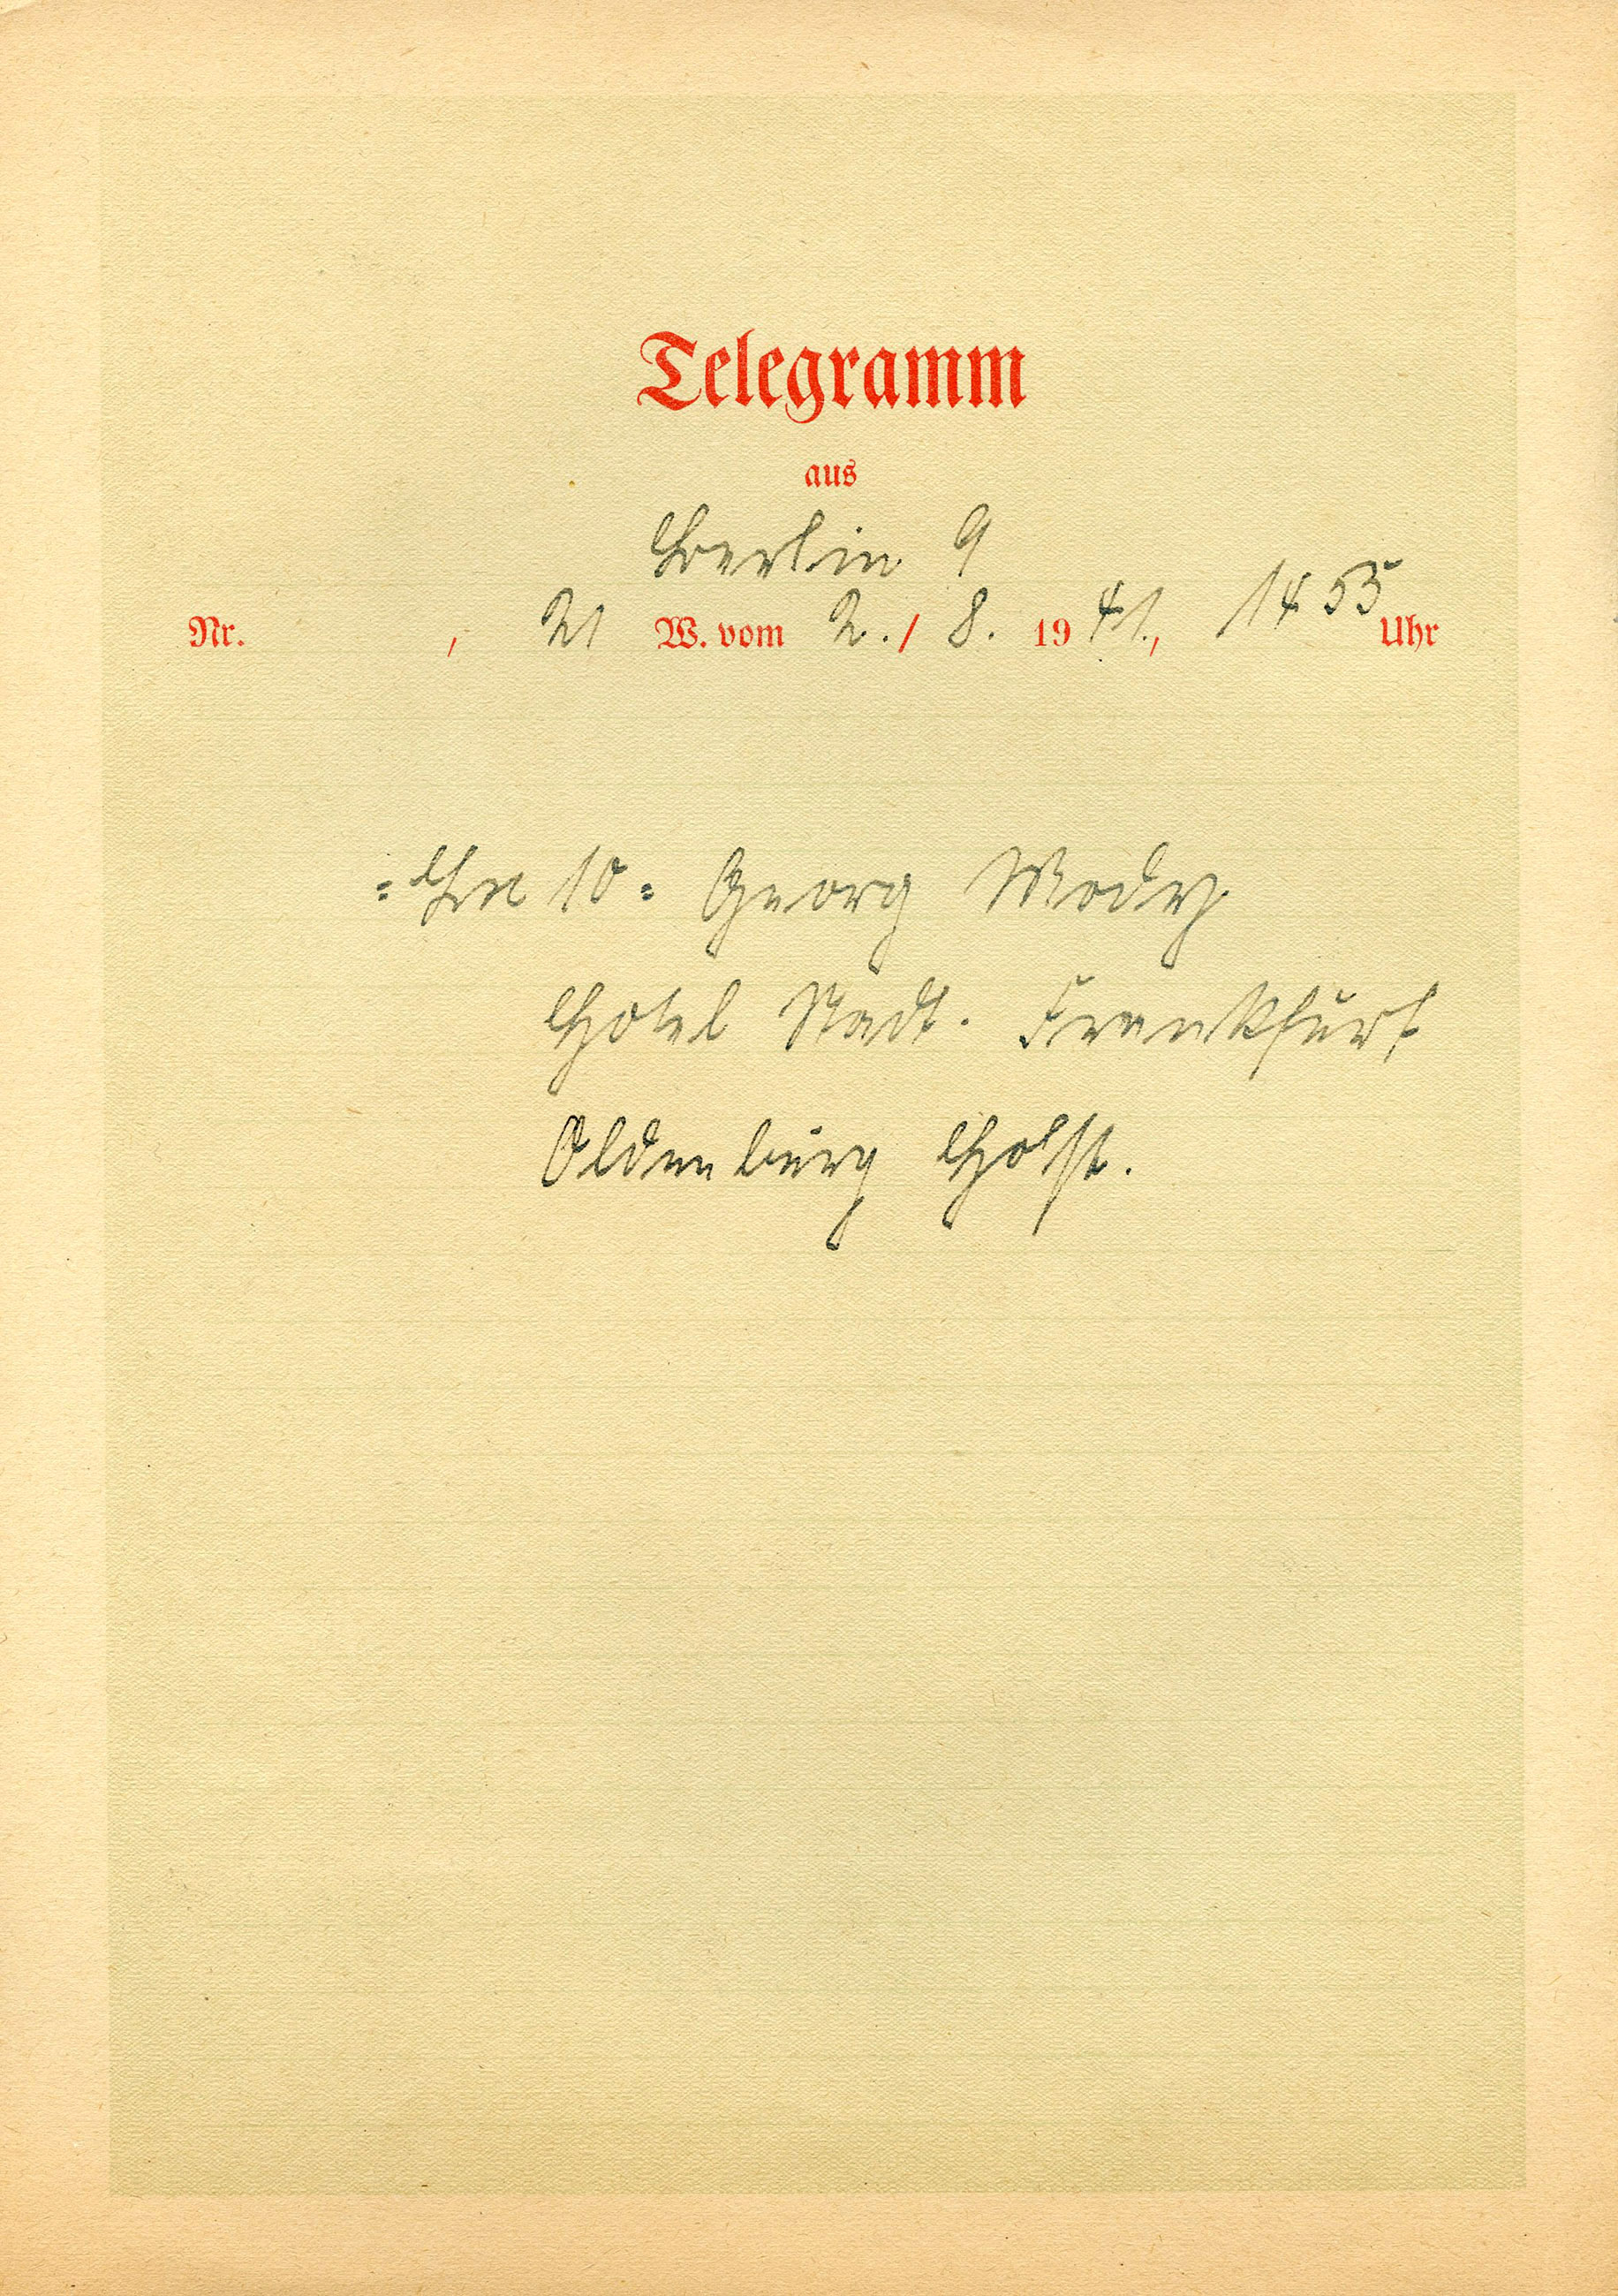 Telegramm
aus
Berlin 9
Nr. , 21 W. vom 2. / 8. 1941., 14 55 Uhr
= 10 = Georg
Hotel Stadt. Frankfurt
Oldenburg Holst.